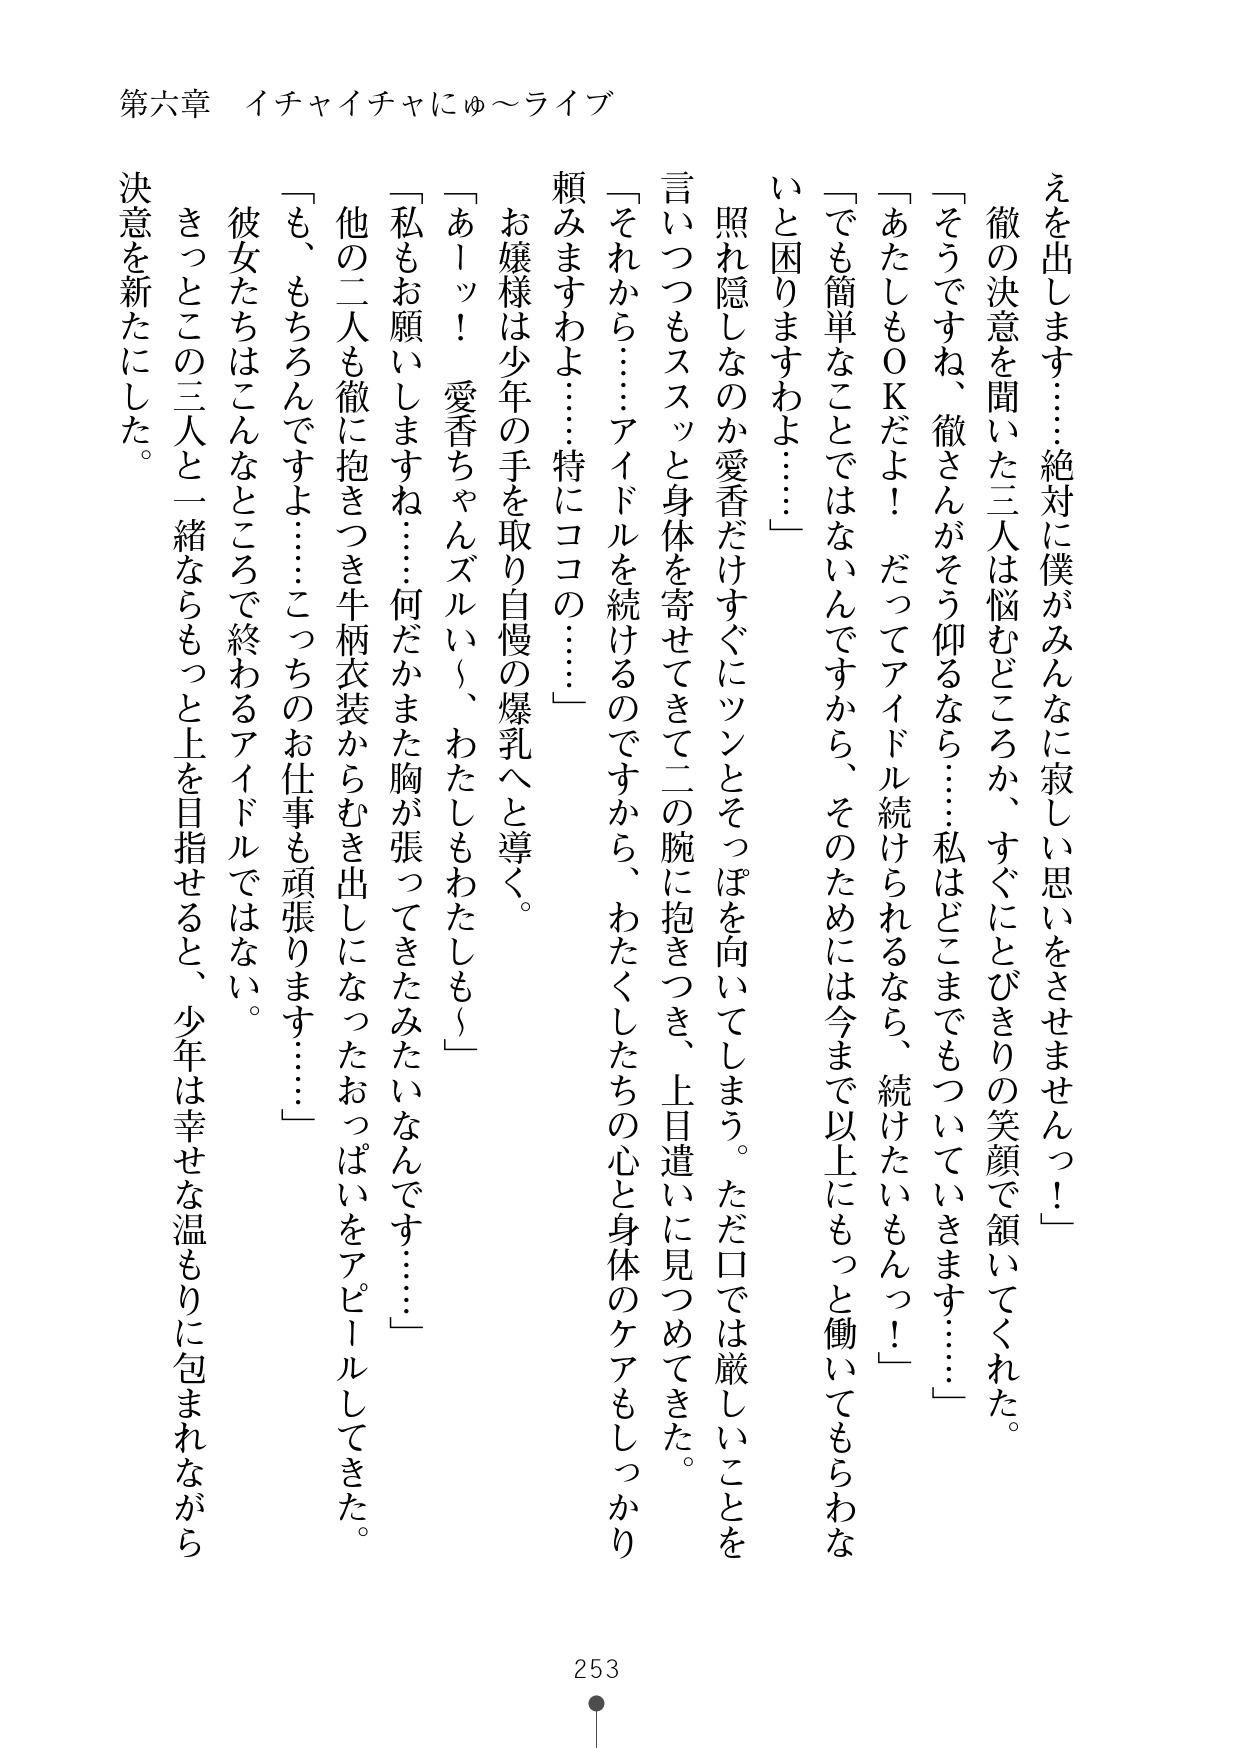 第六章　イチャイチャにゅ〜ライブ
えを出します……絶対に僕がみんなに寂しい思いをさせませんっ！」
　徹の決意を聞いた三人は悩むどころか、すぐにとびきりの笑顔で頷いてくれた。
「そうですね、徹さんがそう仰るなら……私はどこまでもついていきます……」
「あたしもＯＫだよ！　だってアイドル続けられるなら、続けたいもんっ！」
「でも簡単なことではないんですから、そのためには今まで以上にもっと働いてもらわな
いと困りますわよ……」
　照れ隠しなのか愛香だけすぐにツンとそっぽを向いてしまう。ただ口では厳しいことを
言いつつもススッと身体を寄せてきて二の腕に抱きつき、上目遣いに見つめてきた。
「それから……アイドルを続けるのですから、わたくしたちの心と身体のケアもしっかり
頼みますわよ……特にココの……」
　お嬢様は少年の手を取り自慢の爆乳へと導く。
「あーッ！　愛香ちゃんズルい〜、わたしもわたしも〜」
「私もお願いしますね……何だかまた胸が張ってきたみたいなんです……」
　他の二人も徹に抱きつき牛柄衣装からむき出しになったおっぱいをアピールしてきた。
「も、もちろんですよ……こっちのお仕事も頑張ります……」
　彼女たちはこんなところで終わるアイドルではない。
　きっとこの三人と一緒ならもっと上を目指せると、少年は幸せな温もりに包まれながら
決意を新たにした。
253